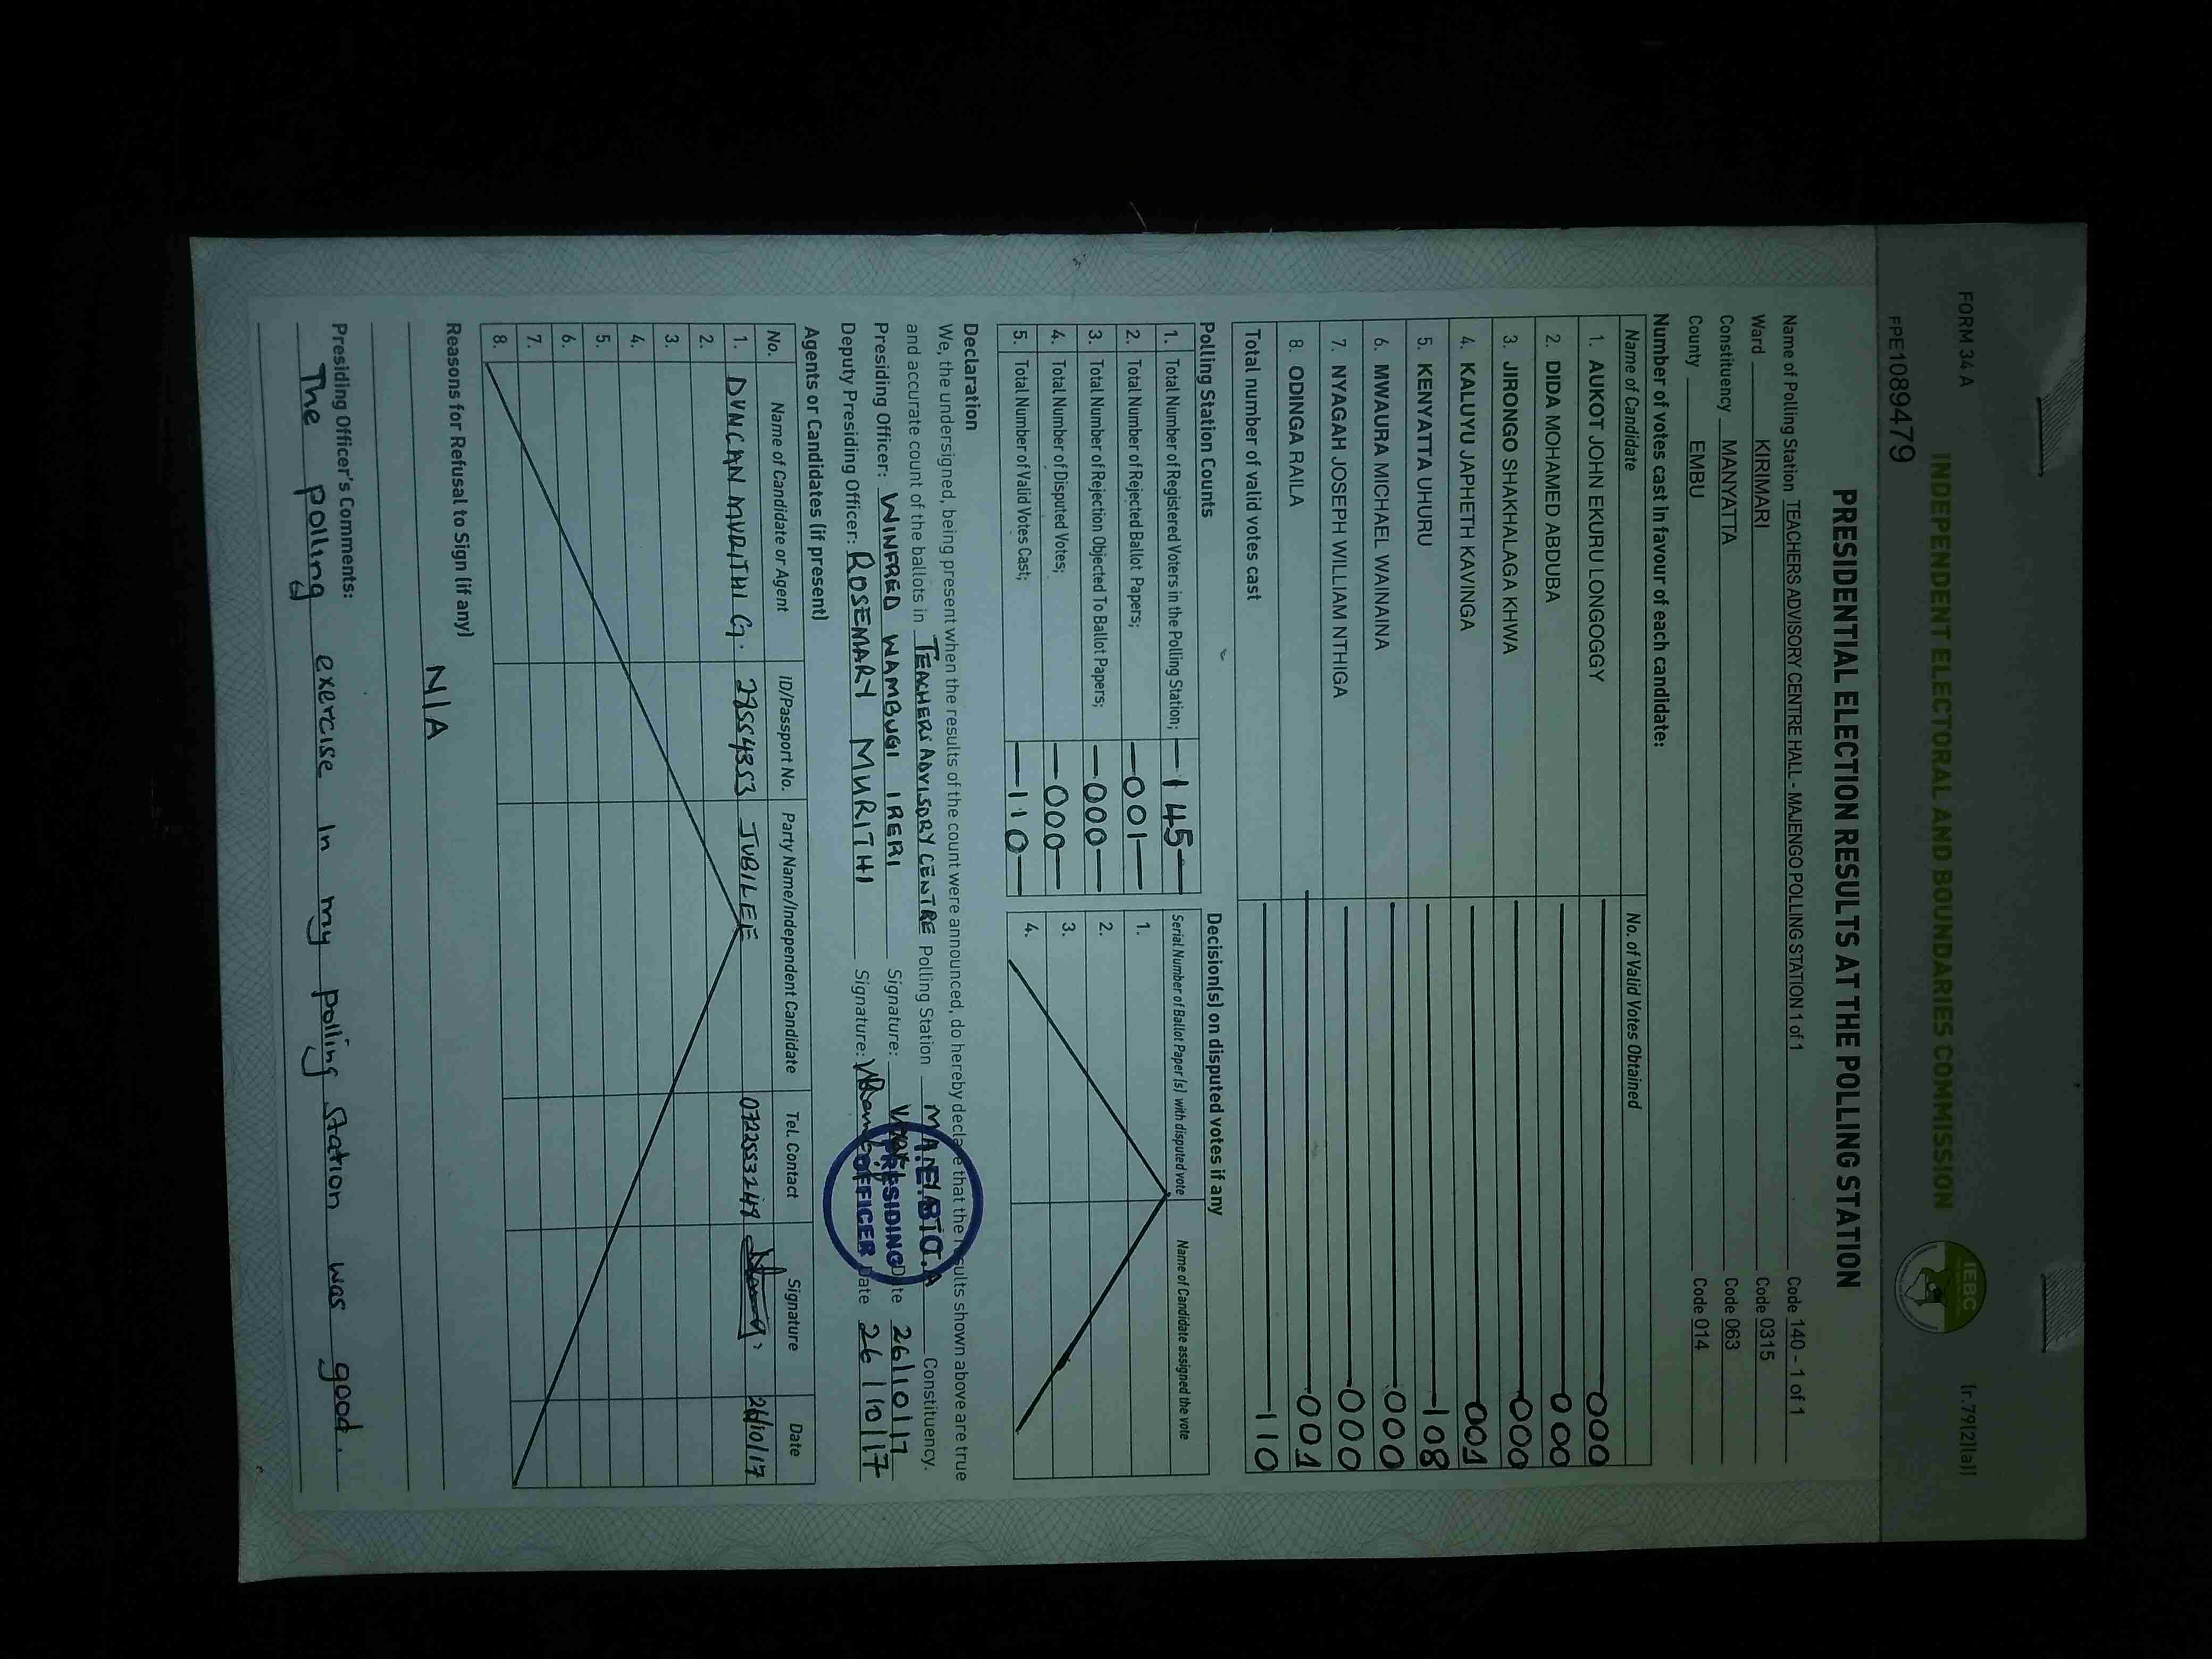 FORM 34 A
(r.79(2)(a))
INDEPENDENT ELECTORAL AND BOUNDARIES COMMISSION
IEBC
FPE1089479
PRESIDENTIAL ELECTION RESULTS AT THE POLLING STATION
Name of Polling Station TEACHERS ADVISORY CENTRE HALL - MAJENGO POLLING STATION 1 of 1 Code 140 - 1 of 1
Ward KIRIMARI Code 0315
Constituency MANYATTA Code 063
County EMBU Code 014
Number of votes cast in favour of each candidate:
Name of Candidate No. of Valid Votes Obtained
1. AUKOT JOHN EKURU LONGOGGY 000
2. DIDA MOHAMED ABDUBA 000
3. JIRONGO SHAKHALAGA KHWA 000
4. KALUYU JAPHETH KAVINGA 001
5. KENYATTA UHURU 108
6. MWAURA MICHAEL WAINAINA 000
7. NYAGAH JOSEPH WILLIAM NTHIGA 000
8. ODINGA RAILA 001
Total number of valid votes cast 110
Polling Station Counts
1. Total Number of Registered Voters in the Polling Station; 145
2. Total Number of Rejected Ballot Papers; 001
3. Total Number of Rejection Objected To Ballot Papers; 000
4. Total Number of Disputed Votes; 000
5. Total Number of Valid Votes Cast; 110
Decision(s) on disputed votes if any
Serial Number of Ballot Paper (s) with disputed vote Name of Candidate assigned the vote
1.
2.
3.
4.
Declaration
We, the undersigned, being present when the results of the count were announced, do hereby declare that the results shown above are true
and accurate count of the ballots in TEACHERS ADVISORY CENTRE Polling Station MANYATTA Constituency.
Presiding Officer: WINFRED WAMBUGI IRERI Signature: Date 26/10/17
Deputy Presiding Officer: ROSEMARY MURITHI Signature: Date 26/10/17
I.E.B.C.
PRESIDING
OFFICER
Agents or Candidates (if present)
No. Name of Candidate or Agent ID/Passport No. Party Name/Independent Candidate Tel. Contact Signature Date
1. DUNCAN MURITHI G. 27554353 JUBILEE 26/10/17
2.
3.
4.
5.
6.
7.
8.
Reasons for Refusal to Sign (if any)
N/A
Presiding Officer's Comments:
The polling exercise in my polling station was good.